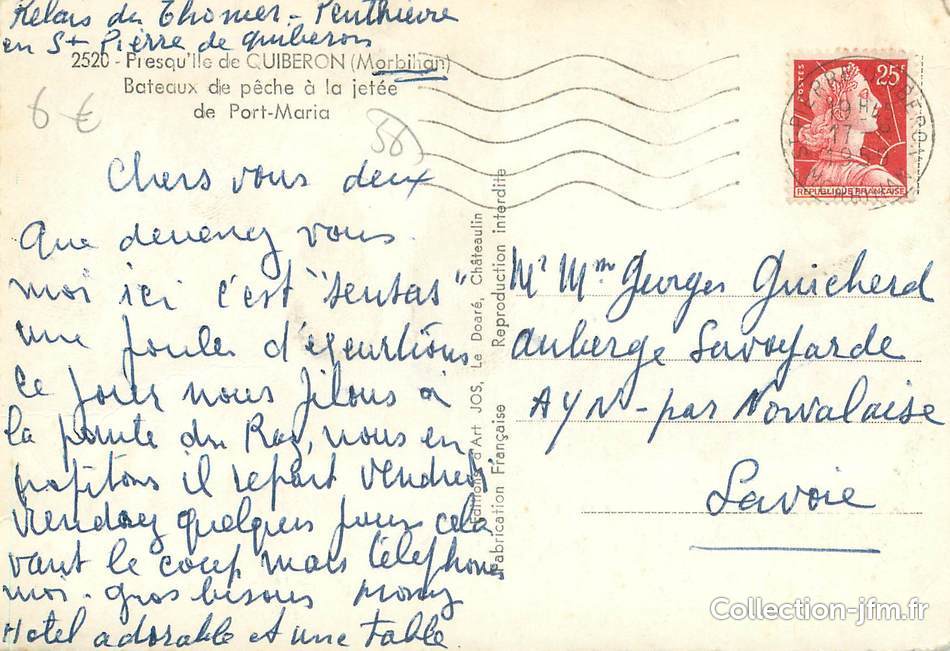 Relais du Thonier - Penthièvre
en St Pierre de Quiberon
2520 - Presqu'Ile de QUIBERON (Morbihan)
Bateaux de pêche à la jetée
de Port-Maria
6 €
56
Chers vous deux
Que devenez vous
moi ici c'est "sensas"
une foule d'excurtions
ce jour nous filons à
la pointe du Raz, nous en
profitons il repart vendredi
viendrez quelques jours cela
vaut le coup mais téléphonez
moi - Gros bisous
Hotel adorable et une table
Editions d'Art JOS, Le Doaré, Châteaulin
Fabrication Française Reproduction interdite
POSTES
25F
REPUBLIQUE FRANÇAISE
Mr Mme Georges Guicherd
Auberge Savoyarde
AYN - par Novalaise
Savoie
Collection-jfm.fr